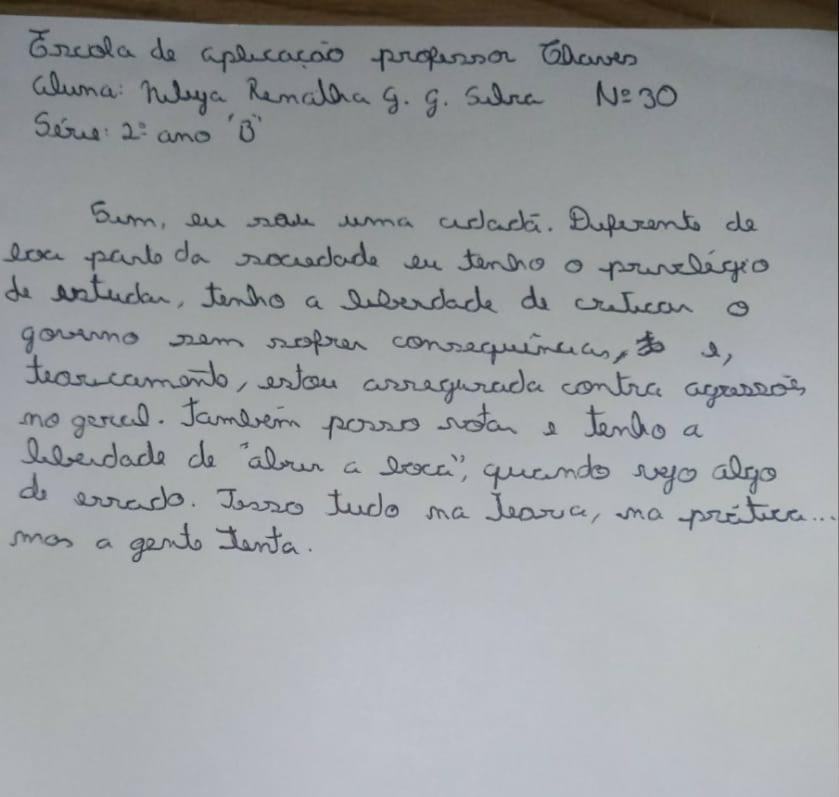 Escola de aplicação professor Chaves
Aluna: Remalha G. G. Silva Nº 30
Série: 2º ano "B"
Sim, eu sou uma cidadã. Diferente de
boa parte da sociedade eu tenho o privilégio
de estudar, tenho a liberdade de criticar o
governo sem sofrer consequências, e,
teoricamente, estou assegurada contra agressões
no geral. Também posso votar e tenho a
liberdade de "abrir a boca", quando vejo algo
de errado. Isso tudo na teoria, na prática...
mas a gente tenta.